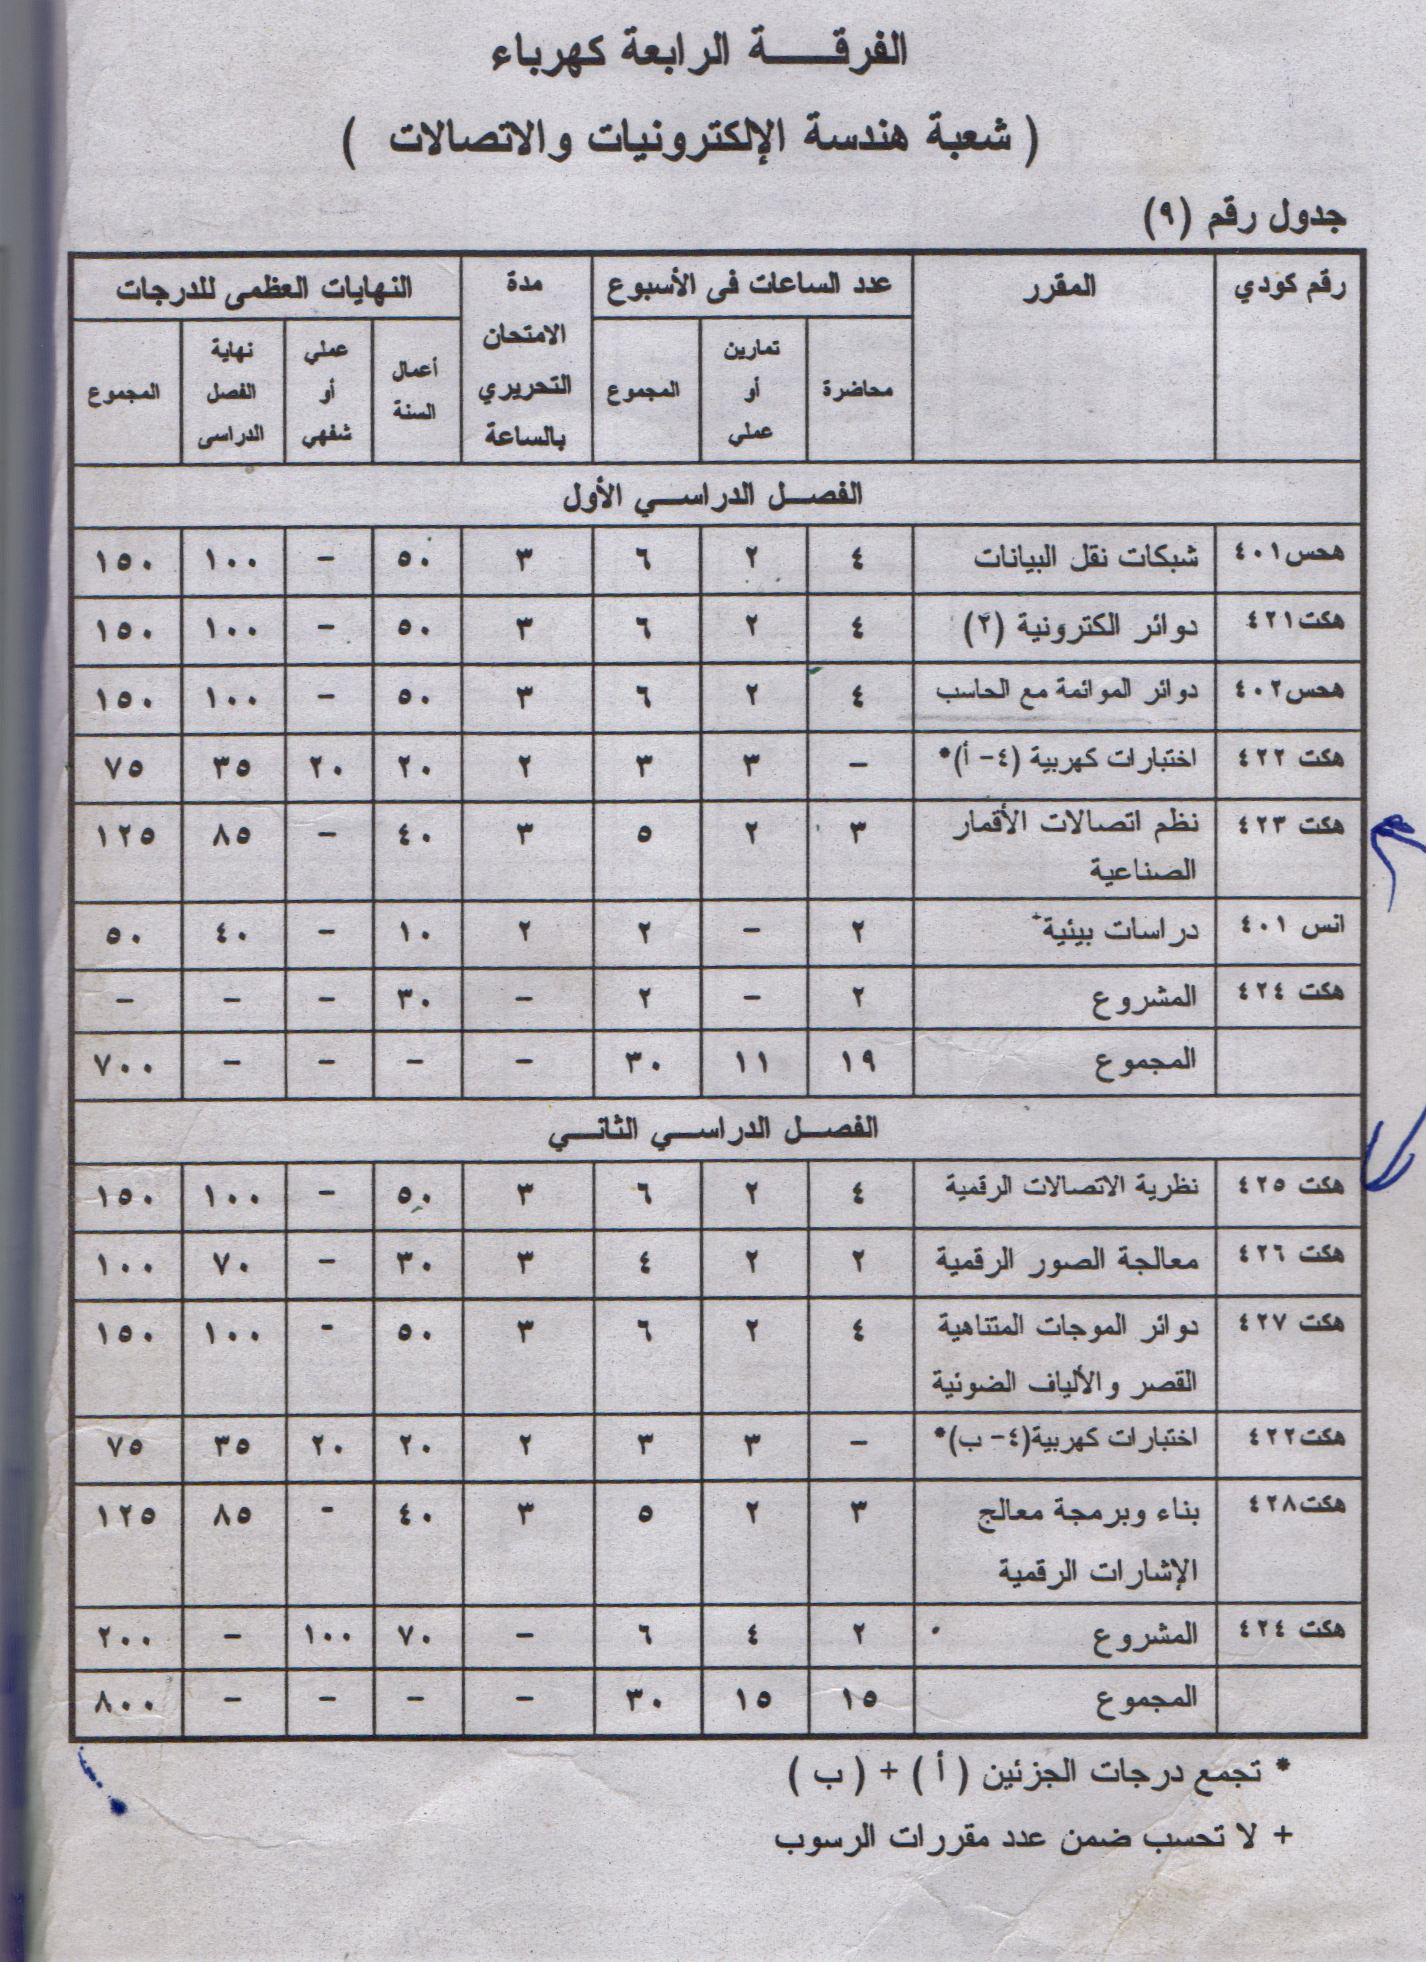 الفرقة الرابعة كهرباء
( شعبة هندسة الإلكترونيات والاتصالات )
جدول رقم (٩)
رقم كودي | المقرر | عدد الساعات فى الأسبوع | مدة الامتحان التحريري بالساعة | النهايات العظمى للدرجات
محاضرة | تمارين أو عملي | المجموع | أعمال السنة | عملي أو شفهي | نهاية الفصل الدراسى | المجموع
الفصل الدراسي الأول
هحس٤٠١ | شبكات نقل البيانات | ٤ | ٢ | ٦ | ٣ | ٥٠ | – | ١٠٠ | ١٥٠
هكت٤٢١ | دوائر الكترونية (٢) | ٤ | ٢ | ٦ | ٣ | ٥٠ | – | ١٠٠ | ١٥٠
هحس٤٠٢ | دوائر الموائمة مع الحاسب | ٤ | ٢ | ٦ | ٣ | ٥٠ | – | ١٠٠ | ١٥٠
هكت ٤٢٢ | اختبارات كهربية (٤- أ)* | – | ٣ | ٣ | ٢ | ٢٠ | ٢٠ | ٣٥ | ٧٥
هكت ٤٢٣ | نظم اتصالات الأقمار | ٣ | ٢ | ٥ | ٣ | ٤٠ | – | ٨٥ | ١٢٥
الصناعية
انس ٤٠١ | دراسات بيئية+ | ٢ | – | ٢ | ٢ | ١٠ | – | ٤٠ | ٥٠
هكت ٤٢٤ | المشروع | ٢ | – | ٢ | – | ٣٠ | – | – | –
المجموع | ١٩ | ١١ | ٣٠ | – | – | – | – | ٧٠٠
الفصل الدراسي الثاني
هكت ٤٢٥ | نظرية الاتصالات الرقمية | ٤ | ٢ | ٦ | ٣ | ٥٠ | – | ١٠٠ | ١٥٠
هكت ٤٢٦ | معالجة الصور الرقمية | ٢ | ٢ | ٤ | ٣ | ٣٠ | – | ٧٠ | ١٠٠
هكت ٤٢٧ | دوائر الموجات المتناهية | ٤ | ٢ | ٦ | ٣ | ٥٠ | - | ١٠٠ | ١٥٠
القصر والألياف الضوئية
هكت٤٢٢ | اختبارات كهربية(٤- ب)* | – | ٣ | ٣ | ٢ | ٢٠ | ٢٠ | ٣٥ | ٧٥
هكت٤٢٨ | بناء وبرمجة معالج | ٣ | ٢ | ٥ | ٣ | ٤٠ | - | ٨٥ | ١٢٥
الإشارات الرقمية
هكت ٤٢٤ | المشروع | ٢ | ٤ | ٦ | – | ٧٠ | ١٠٠ | – | ٢٠٠
المجموع | ١٥ | ١٥ | ٣٠ | – | – | – | – | ٨٠٠
* تجمع درجات الجزئين ( أ ) + ( ب )
+ لا تحسب ضمن عدد مقررات الرسوب